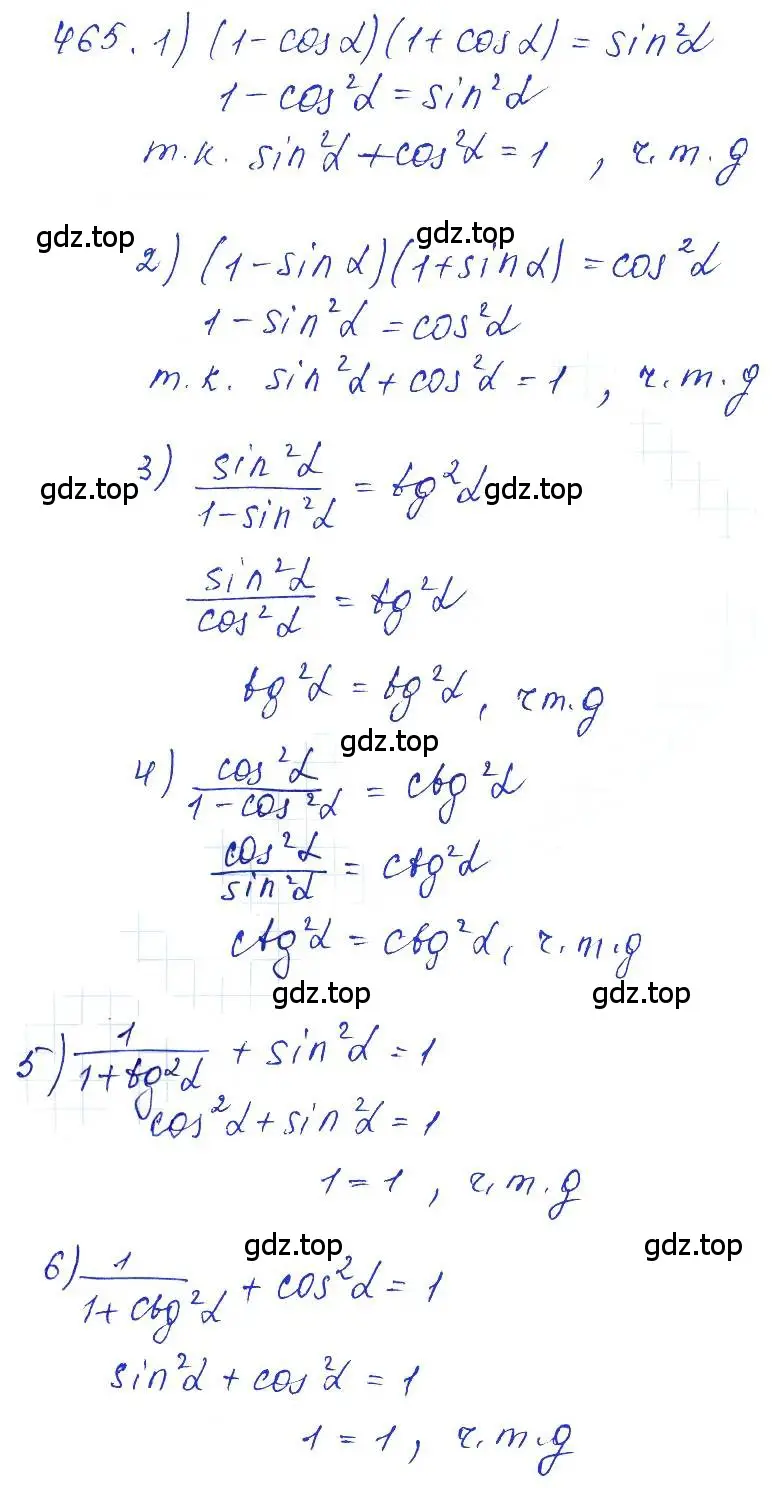 465. 1) (1-cosα)(1+cosα) = sin²α
1-cos²α = sin²α
т.к. sin²α+cos²α = 1 , ч.т.д
gdz.top
gdz.top
2) (1-sinα)(1+sinα) = cos²α
1-sin²α = cos²α
т.к. sin²α+cos²α = 1 , ч.т.д
3) sin²α/(1-sin²α) = tg²α
gdz.top
gdz.top
sin²α/cos²α = tg²α
tg²α = tg²α, ч.т.д
gdz.top
4) cos²α/(1-cos²α) = ctg²α
cos²α/sin²α = ctg²α
ctg²α = ctg²α, ч.т.д
gdz.top
gdz.top
5) 1/(1+tg²α) + sin²α = 1
cos²α+sin²α = 1
1 = 1 , ч.т.д
gdz.top
gdz.top
6) 1/(1+ctg²α) + cos²α = 1
sin²α + cos²α = 1
1 = 1 , ч.т.д